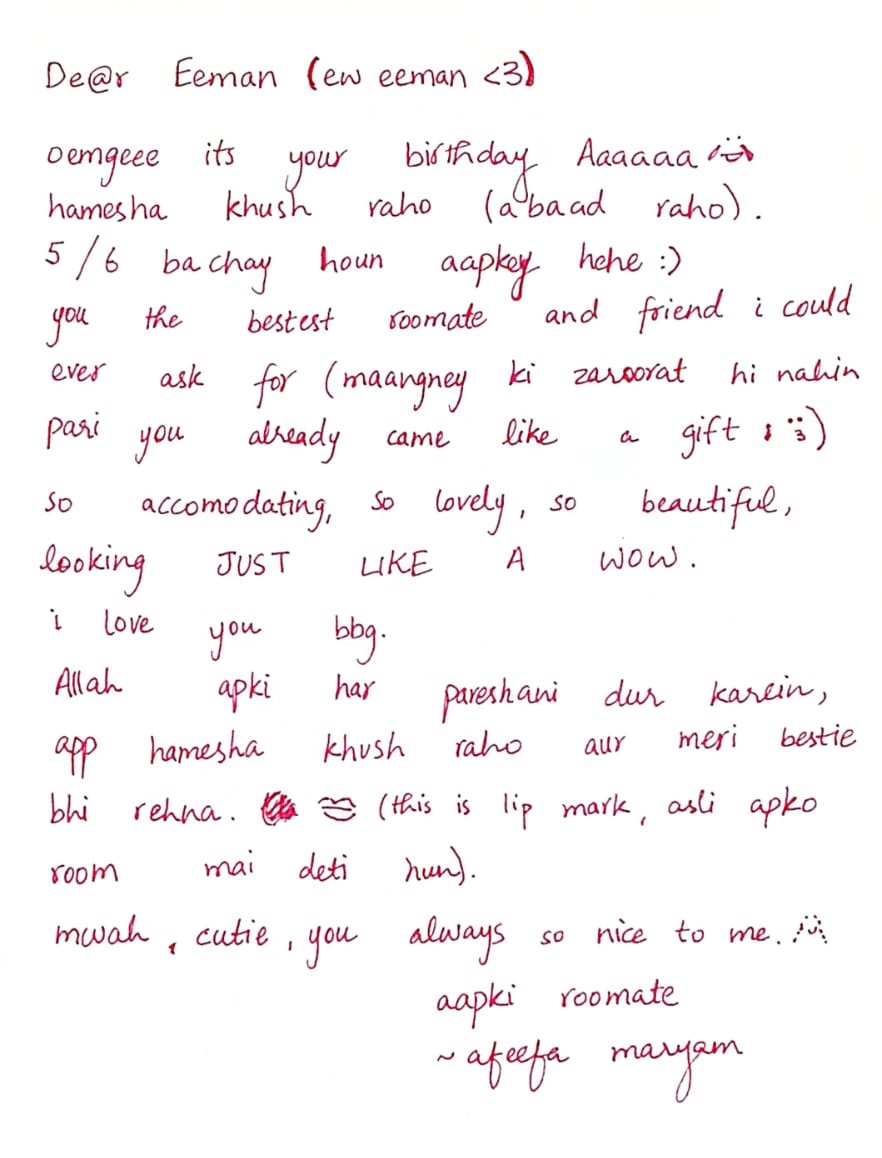 De@r Eeman (ew eeman <3)
oemgeee its your birthday Aaaaaa
hamesha khush raho (abaad raho).
5/6 bachay houn aapkey hehe :)
you the bestest roomate and friend i could
ever ask for (maangney ki zaroorat hi nahin
pari you already came like a gift :3)
so accomodating, so lovely, so beautiful,
looking JUST LIKE A WOW.
i love you bbg.
Allah apki har pareshani dur karein,
app hamesha khush raho aur meri bestie
bhi rehna. (this is lip mark, asli apko
room mai deti hun).
mwah, cutie, you always so nice to me.
aapki roomate
~ afeefa maryam